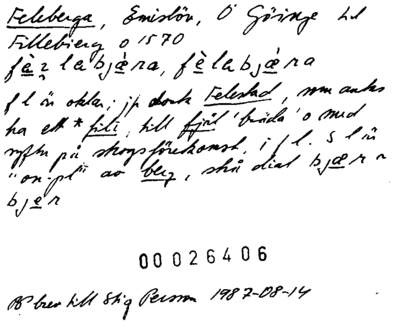 Feleberga, Emislöv, Ö Göinge hd
Fillebierg o 1570
fèzlabjæra, fèlabjæra
f l är oklar; jp dock Felestad, som
ha ett *fili, till fjäl 'bräda' o med
syftn på skogsförekomst, i f l. S l är
av berg, skå dial bjær ~
bjer
00026406
brev till Stig Persson 1987-08-14